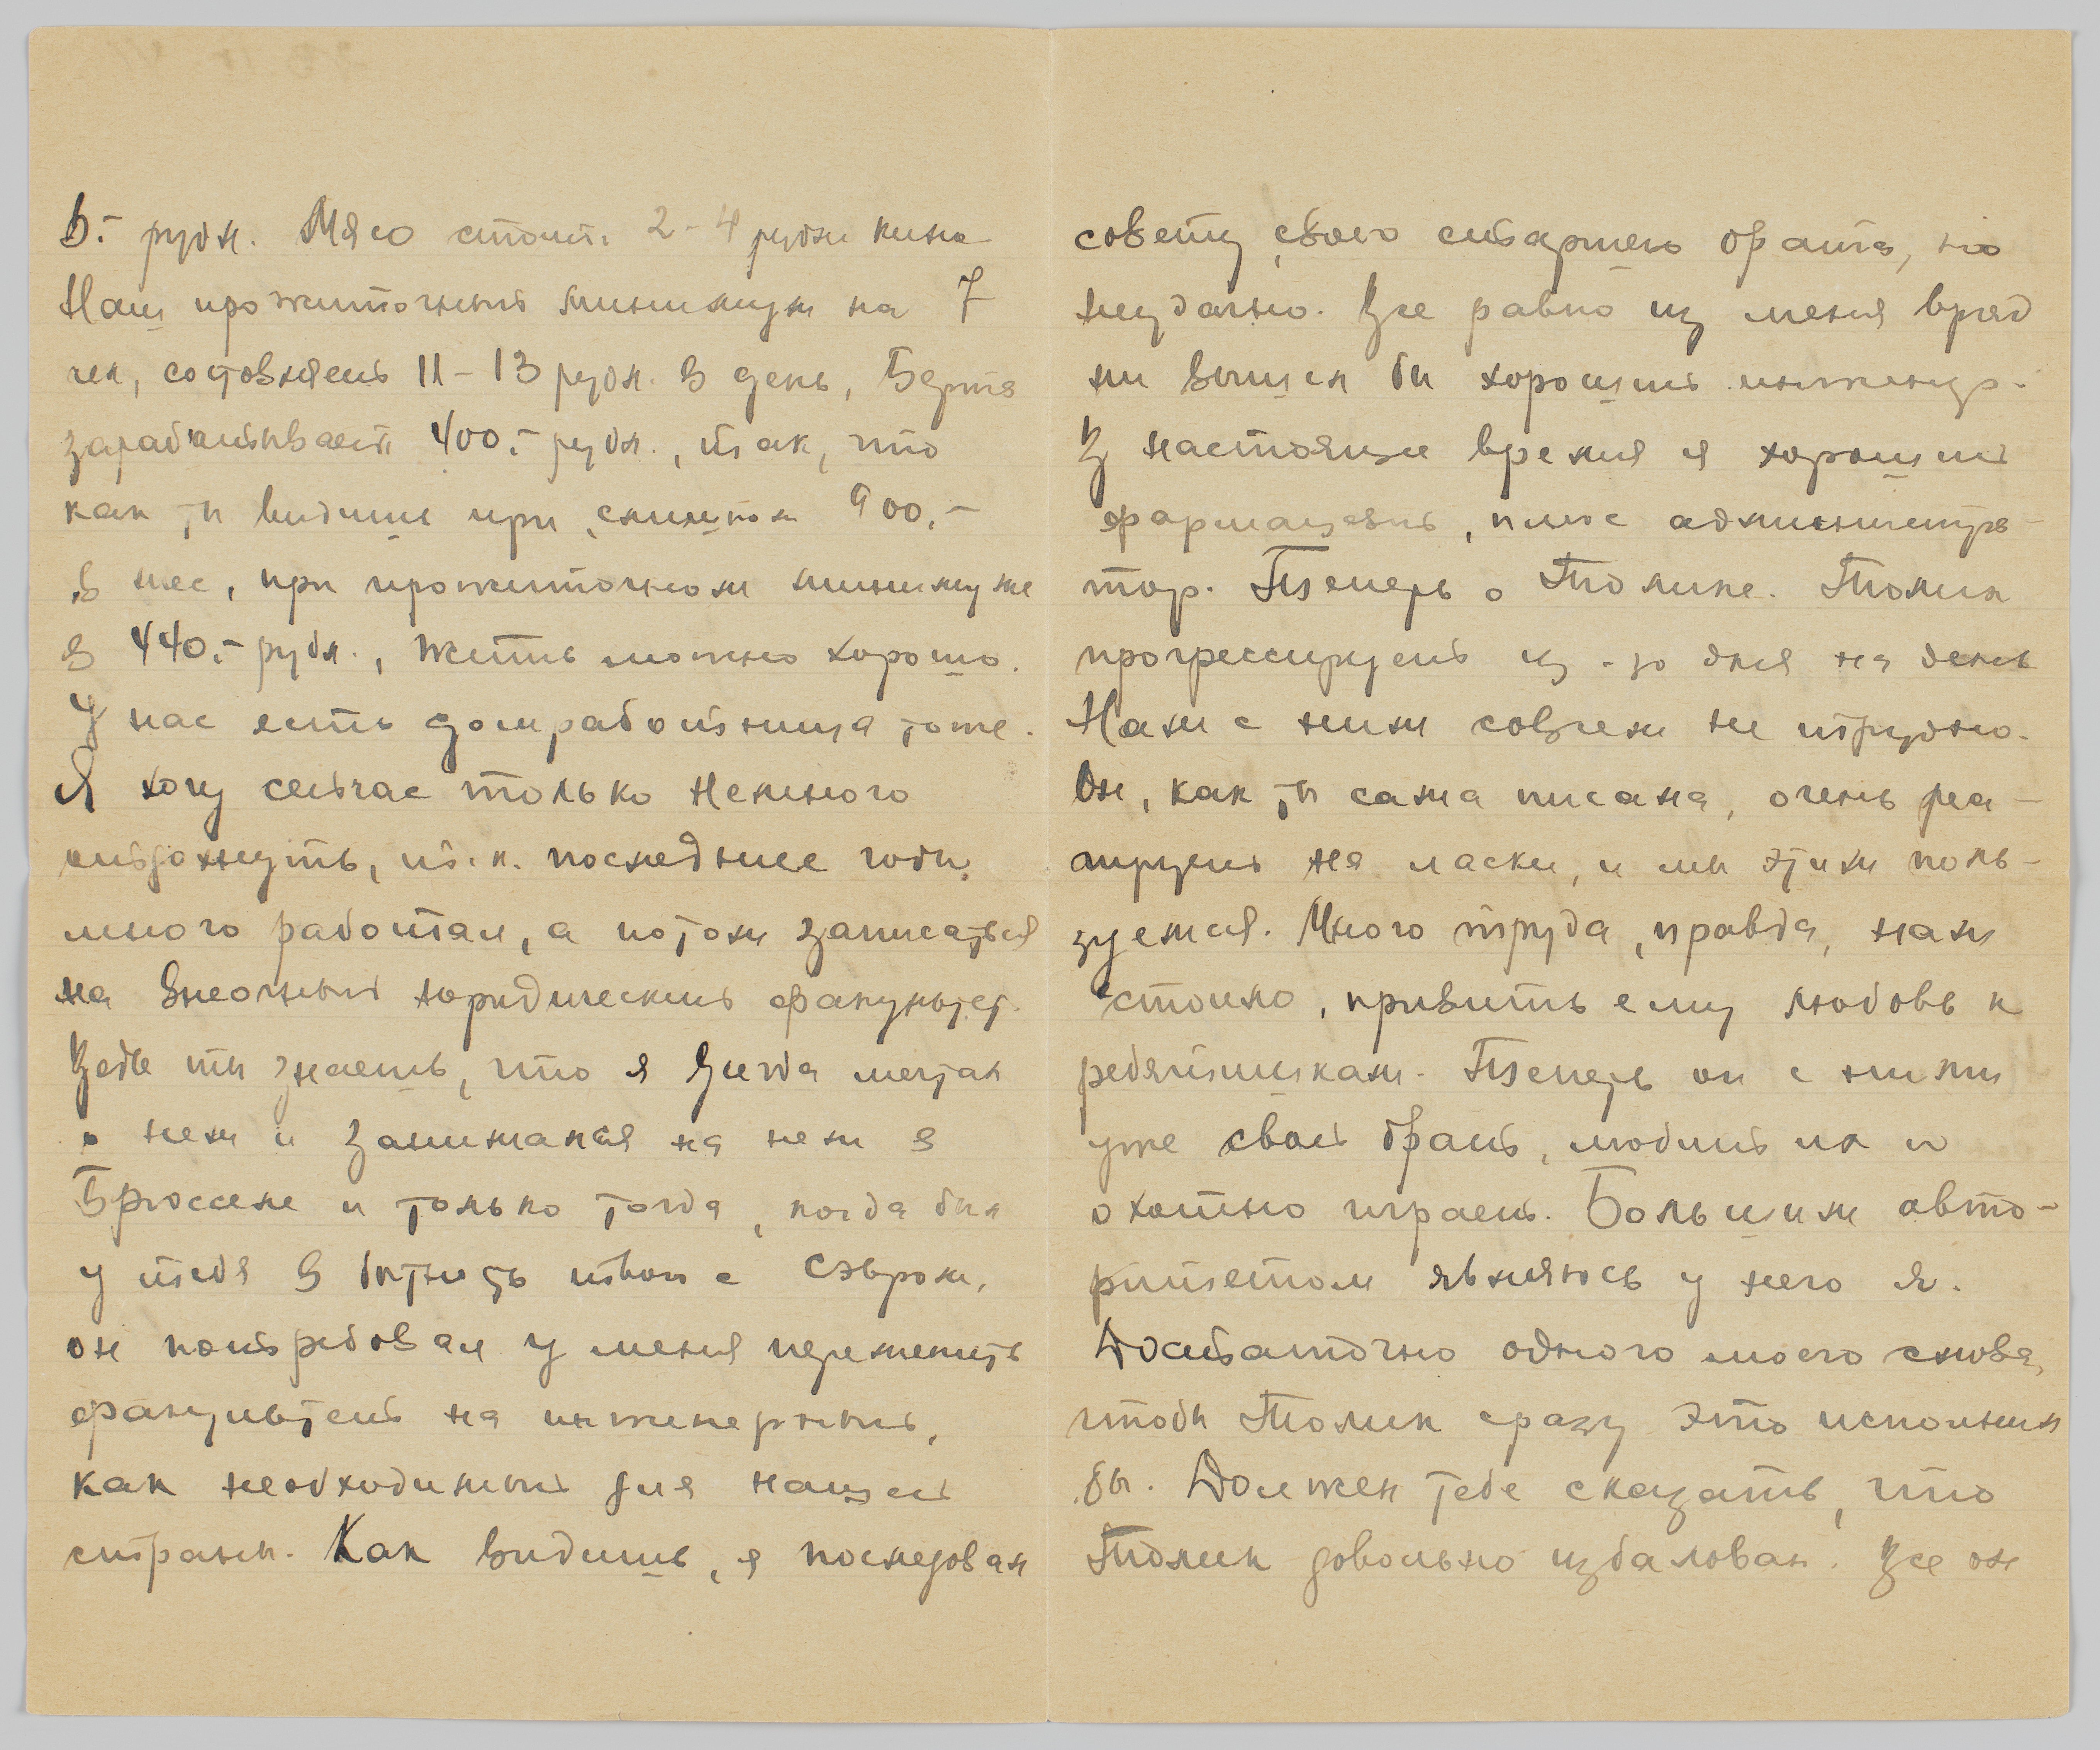 5.- рубл. Мясо стоит 2-4 рубли кило
Наш прожиточный минимум на 7
чел, составляет 11-13 рубл. в день, Берта
зарабатывает 400.- рубл., так, что
как ты видишь при 900.-
в мес, при прожиточном минимуме
в 440.- рубл., жить можно хорошо.
У нас есть домработница тоже.
Я хочу сейчас только немного
отдохнуть, т.к. последнее годы
много работал, а потом записаться
на внеочный юридический факультет.
Ведь ты знаешь, что я всегда мечтал
о нем и занимался на нем в
Брюсселе и только тогда, когда был
у тебя в твой с
он потребовал у меня переменить
факультет на инженерный,
как необходимый для нашей
страны. Как видишь, я последовал
совету своего старшего брата, но
неудачно. Все равно из меня вряд
ли вышел бы хороший инженер.
В настоящее время я хороший
фармацевт, плюс администра-
тор. Теперь о Толике. Толик
прогрессирует из-зо дня на день
Нам с ним совсем не трудно.
Он, как ты сама писала, очень реа-
гирует на ласки, и мы этим поль-
зуемся. Много труда, правда, нам
стоило, привить ему любовь к
ребятишкам. Теперь он с ними
уже свой брат, любит их и
охотно играет. Большим авто-
ритетом являюсь у него я.
Достаточно одного моего слова,
чтобы Толик сразу это исполнил
бы. Должен тебе сказать, что
Толик довольно избалован. Все он